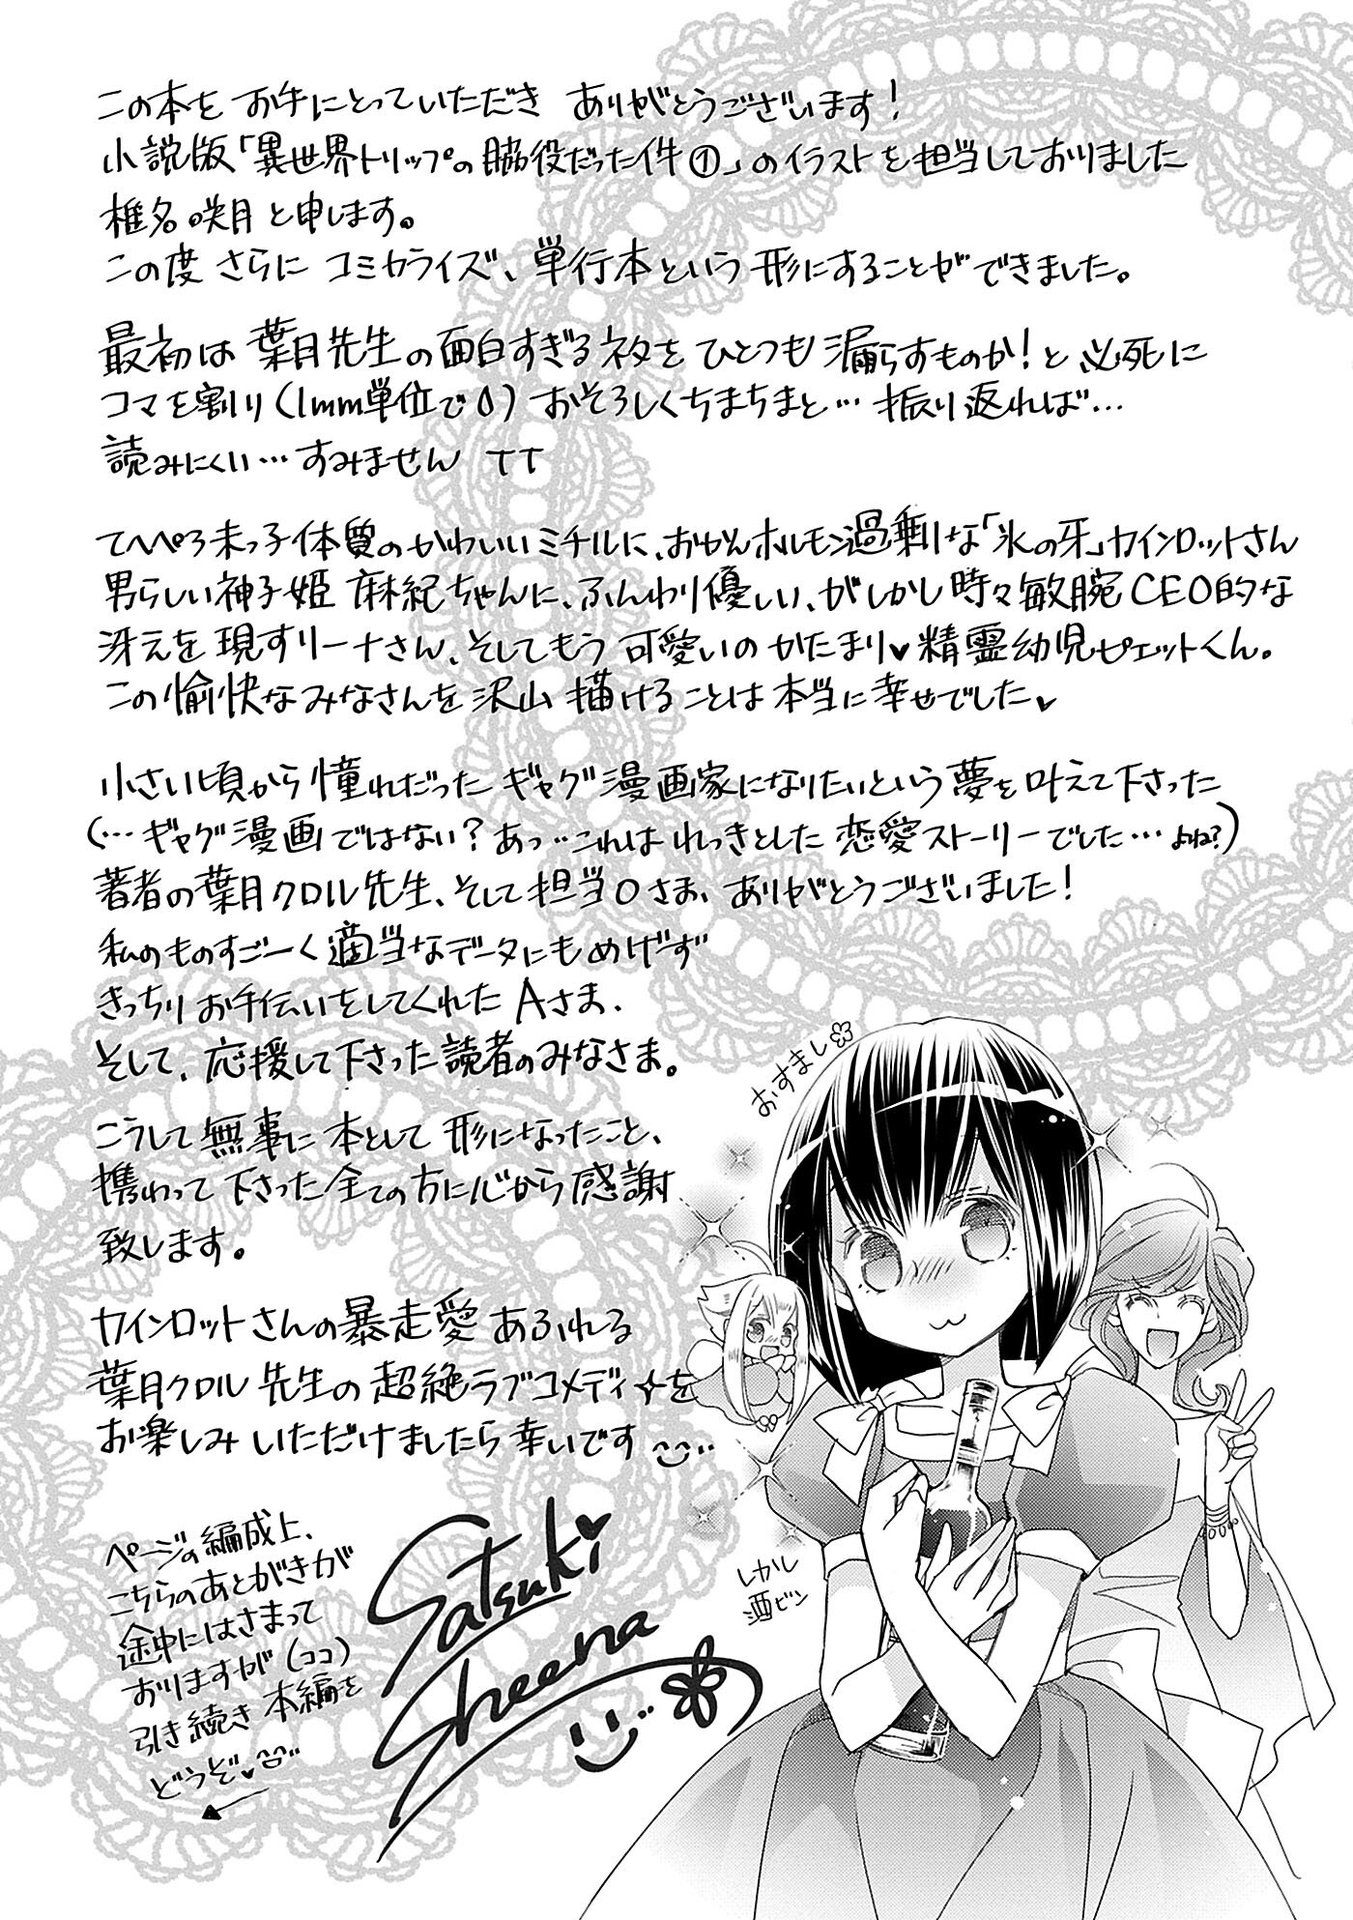 この本をお手にとっていただき ありがとうございます!
小説版「異世界トリップの脇役だった件①」のイラストを担当しておりました
椎名咲月と申します。
この度さらに コミカライズ、単行本という形にすることができました。
最初は葉月先生の面白すぎるネタをひとつも漏らすものか!と必死に
コマを割り(1mm単位で)おそろしくちまちまと…振り返れば…
読みにくい…すみません TT
てへぺろ末っ子体質のかわいいミチルに、おかんホルモン過剰な「氷の牙」カインロットさん
男らしい神子姫 麻紀ちゃんに、ふんわり優しい、がしかし時々敏腕CEO的な
冴えを現すリーナさん、そしてもう可愛いのかたまり♥精霊幼児ピェットくん。
この愉快なみなさんを沢山描けることは本当に幸せでした♥
小さい頃から憧れだったギャグ漫画家になりたいという夢を叶えて下さった
(…ギャグ漫画ではない?あっ…これはれっきとした恋愛ストーリーでした…よね?)
著者の葉月クロル先生、そして担当Oさま、ありがとうございました!
私のものすごーく適当なデータにもめげず
きっちりお手伝いをしてくれたAさま、
そして、応援して下さった読者のみなさま。
こうして無事に本として形になったこと、
携わって下さった全ての方に心から感謝
致します。
カインロットさんの暴走愛あふれる
葉月クロル先生の超絶ラブコメディ☆を
お楽しみいただけましたら幸いです
おすまし
しかし
酒ビン
ページの編成上、
こちらのあとがきが
途中にはさまって
おりますが(ココ)
引き続き本編を
どうぞ♥
Satsuki
Sheena